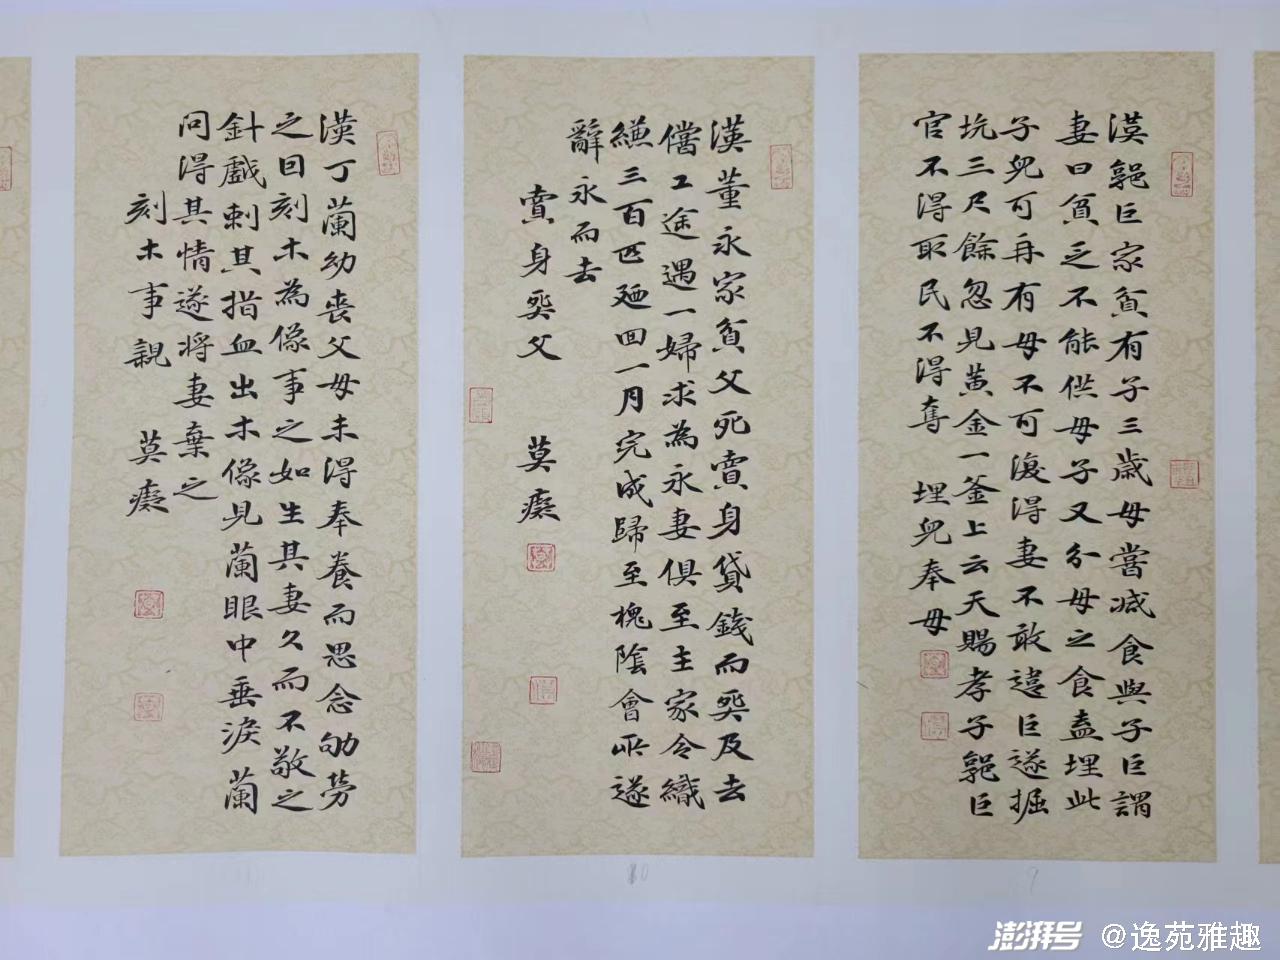 漢郭巨家貧有子三歲母嘗减食與子巨謂
妻曰貧乏不能供母子又分母之食盍埋此
子兒可再有母不可復得妻不敢違巨遂掘
坑三尺餘忽見黄金一釜上云天賜孝子郭巨
官不得取民不得奪 埋兒奉母
漢董永家貧父死賣身貸錢而葬及去
償工途遇一婦求為永妻俱至主家令織
縑三百匹廼回一月完成歸至槐陰會所遂
辭永而去
賣身葬父 莫癡
漢丁蘭幼喪父母未得奉養而思念劬勞
之因刻木為像事之如生其妻久而不敬之
針戲刺其指血出木像見蘭眼中垂淚蘭
問得其情遂將妻棄之
刻木事親 莫癡
10
9
澎湃号 @逸苑雅趣